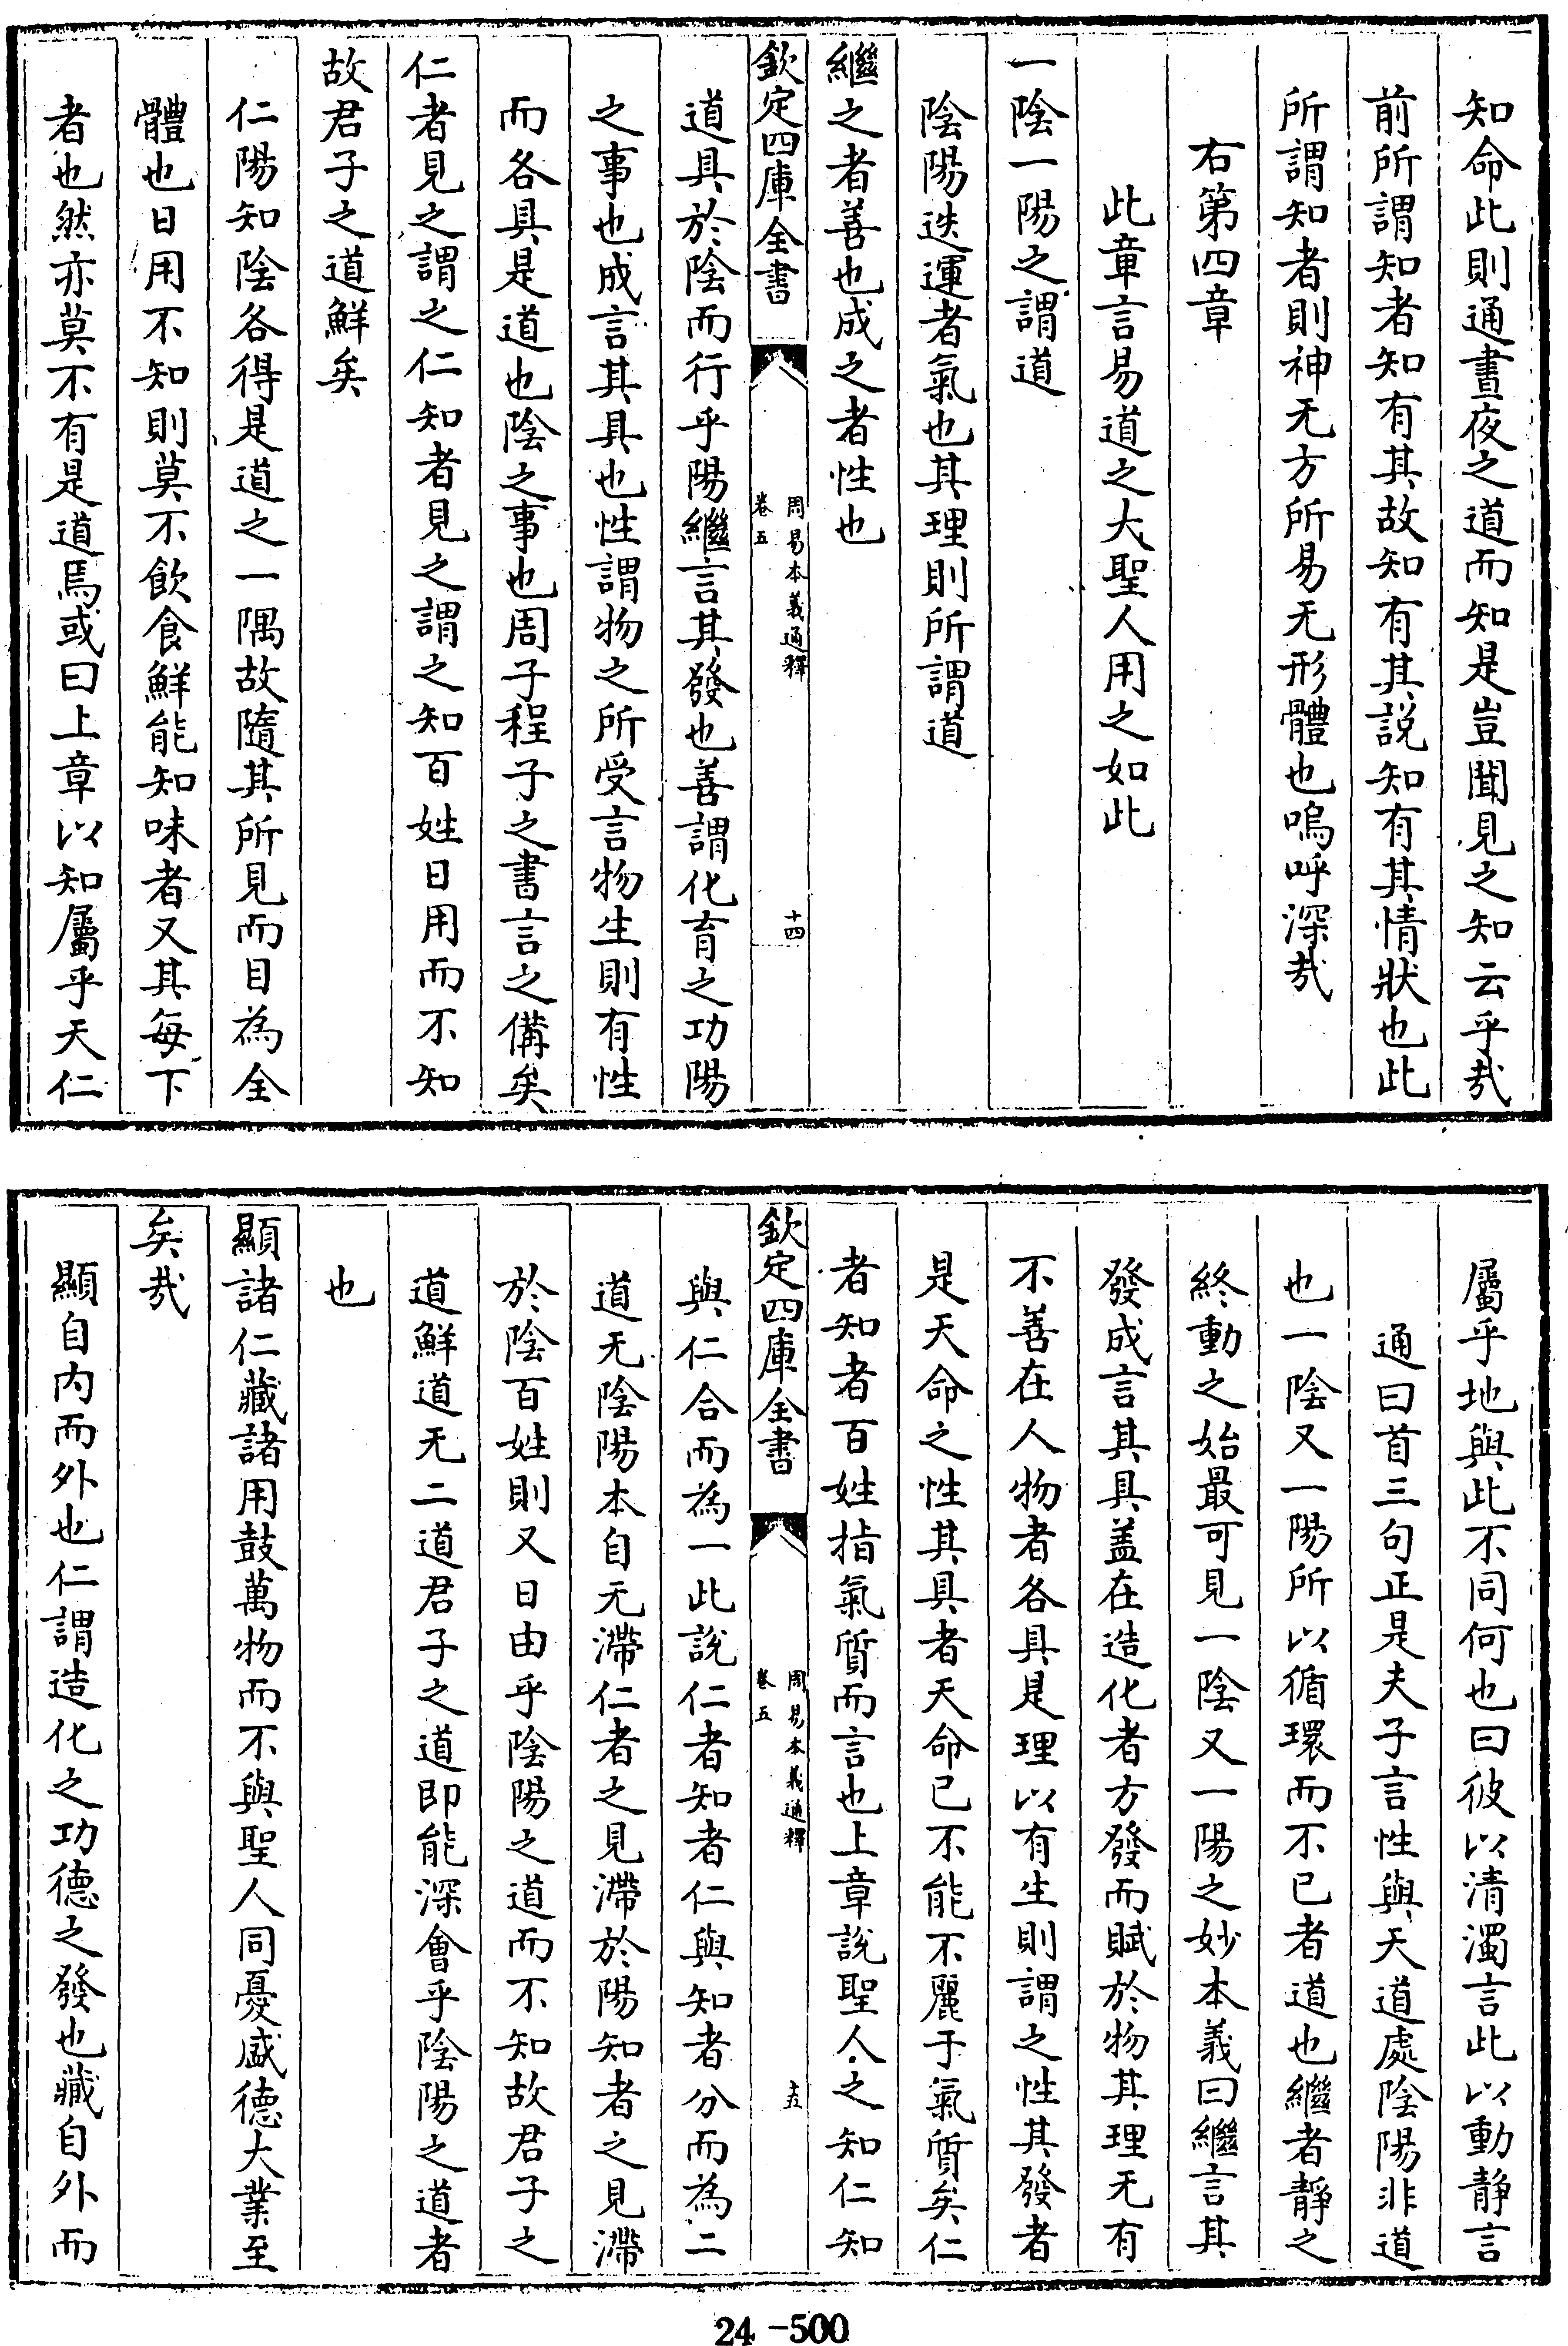 知命此則通晝夜之道而知是豈聞見之知云乎㢤
前所謂知者知有其故知有其説知有其情狀也此
所謂知者則神无方所易无形體也嗚呼深㢤
右第四章
此章言易道之大聖人用之如此
一陰一陽之謂道
陰陽迭運者氣也其理則所謂道
繼之者善也成之者性也
欽定四庫全書
周易本義通釋
卷五
十四
道具於陰而行乎陽繼言其發也善謂化育之功陽
之事也成言其具也性謂物之所受言物生則有性
而各具是道也陰之事也周子程子之書言之備矣
仁者見之謂之仁知者見之謂之知百姓日用而不知
故君子之道鮮矣
仁陽知陰各得是道之一隅故隨其所見而目為全
體也日用不知則莫不飲食鮮能知味者又其每下
者也然亦莫不有是道焉或曰上章以知屬乎天仁
屬乎地與此不同何也曰彼以清濁言此以動靜言
通曰首三句正是夫子言性與天道處陰陽非道
也一陰又一陽所以循環而不已者道也繼者靜之
終動之始最可見一陰又一陽之妙本義曰繼言其
發成言其具盖在造化者方發而賦於物其理无有
不善在人物者各具是理以有生則謂之性其發者
是天命之性其具者天命已不能不麗于氣質矣仁
者知者百姓指氣質而言也上章說聖人之知仁知
欽定四庫全書
周易本義通釋
卷五
十五
與仁合而為一此說仁者知者仁與知者分而為二
道无陰陽本自无滯仁者之見滯於陽知者之見滯
於陰百姓則又日由乎陰陽之道而不知故君子之
道鮮道无二道君子之道即能深會乎陰陽之道者
也
顯諸仁藏諸用鼓萬物而不與聖人同憂盛德大業至
矣㢤
顯自内而外也仁謂造化之功德之發也藏自外而
24-500